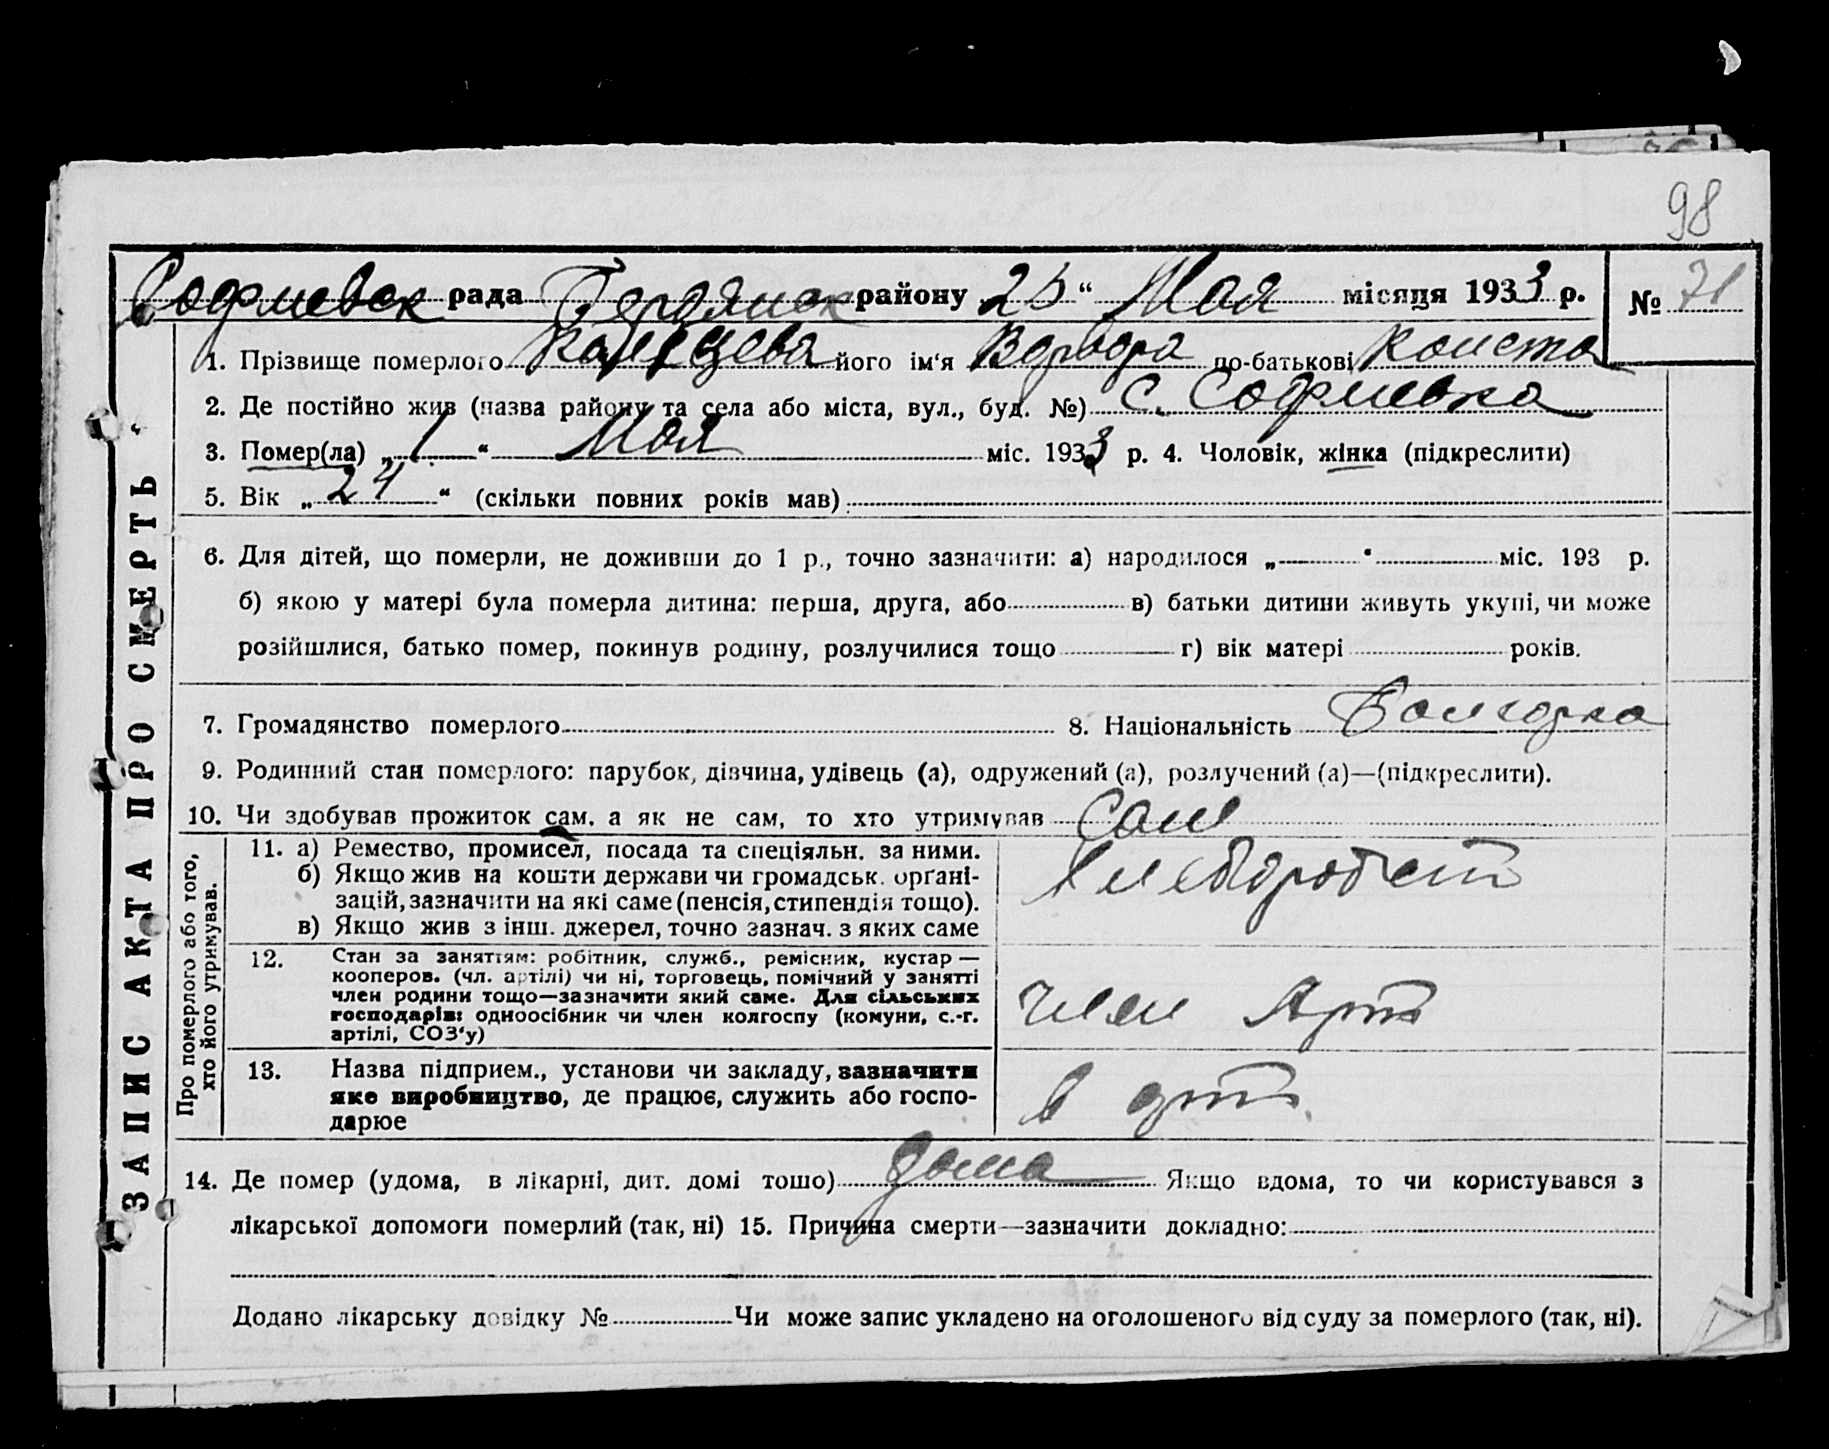 98
Софиевск рада Бердянск району 25 “ Мая місяця 1933 р. № 71
ЗАПИС АКТА ПРО СМЕРТЬ
1. Прізвище померлого його ім‘я Варвара по-батькові Конста
2. Де постійно жив (назва району та села або міста, вул., буд. №) с. Софиевка
3. Помер(ла) „ 1 “ Мая міс. 1933 р. 4. Чоловік, жінка (підкреслити)
5. Вік „ 24 “ (скільки повних років мав)
6. Для дітей, що померли, не доживши до 1 р., точно зазначити: а) народилося „ “ міс. 193 р.
б) якою у матері була померла дитина: перша, друга, або в) батьки дитини живуть укупі, чи може
розійшлися, батько помер, покинув родину, розлучилися тощо г) вік матері років.
7. Громадянство померлого 8. Національність Болгарка
9. Родинний стан померлого: парубок, дівчина, удівець (а), одружений (а), розлучений (а)—(підкреслити).
10. Чи здобував прожиток сам, а як не сам, то хто утримував Сам
Про померлого або того,
хто його утримував.
11. а) Ремество, промисел, посада та спеціяльн. за ними.
б) Якщо жив на кошти держави чи громадськ. орґані-
зацій, зазначити на які саме (пенсія, стипендія тощо).
в) Якщо жив з інш. джерел, точно зазнач. з яких саме
12. Стан за заняттям: робітник, служб., ремісник, кустар —
кооперов. (чл. артілі) чи ні, торговець, помічний у занятті
член родини тощо—зазначити який саме. Для сільських
господарів: одноосібник чи член колгоспу (комуни, с.-г.
артілі, СОЗ‘у)
член Арт
13. Назва підприєм., установи чи закладу, зазначити
яке виробництво, де працює, служить або госпо-
дарює
в арт.
14. Де помер (удома, в лікарні, дит. домі тошо) дома Якщо вдома, то чи користувався з
лікарської допомоги померлий (так, ні) 15. Причина смерти—зазначити докладно:
Додано лікарську довідку № Чи може запис укладено на оголошеного від суду за померлого (так, ні).